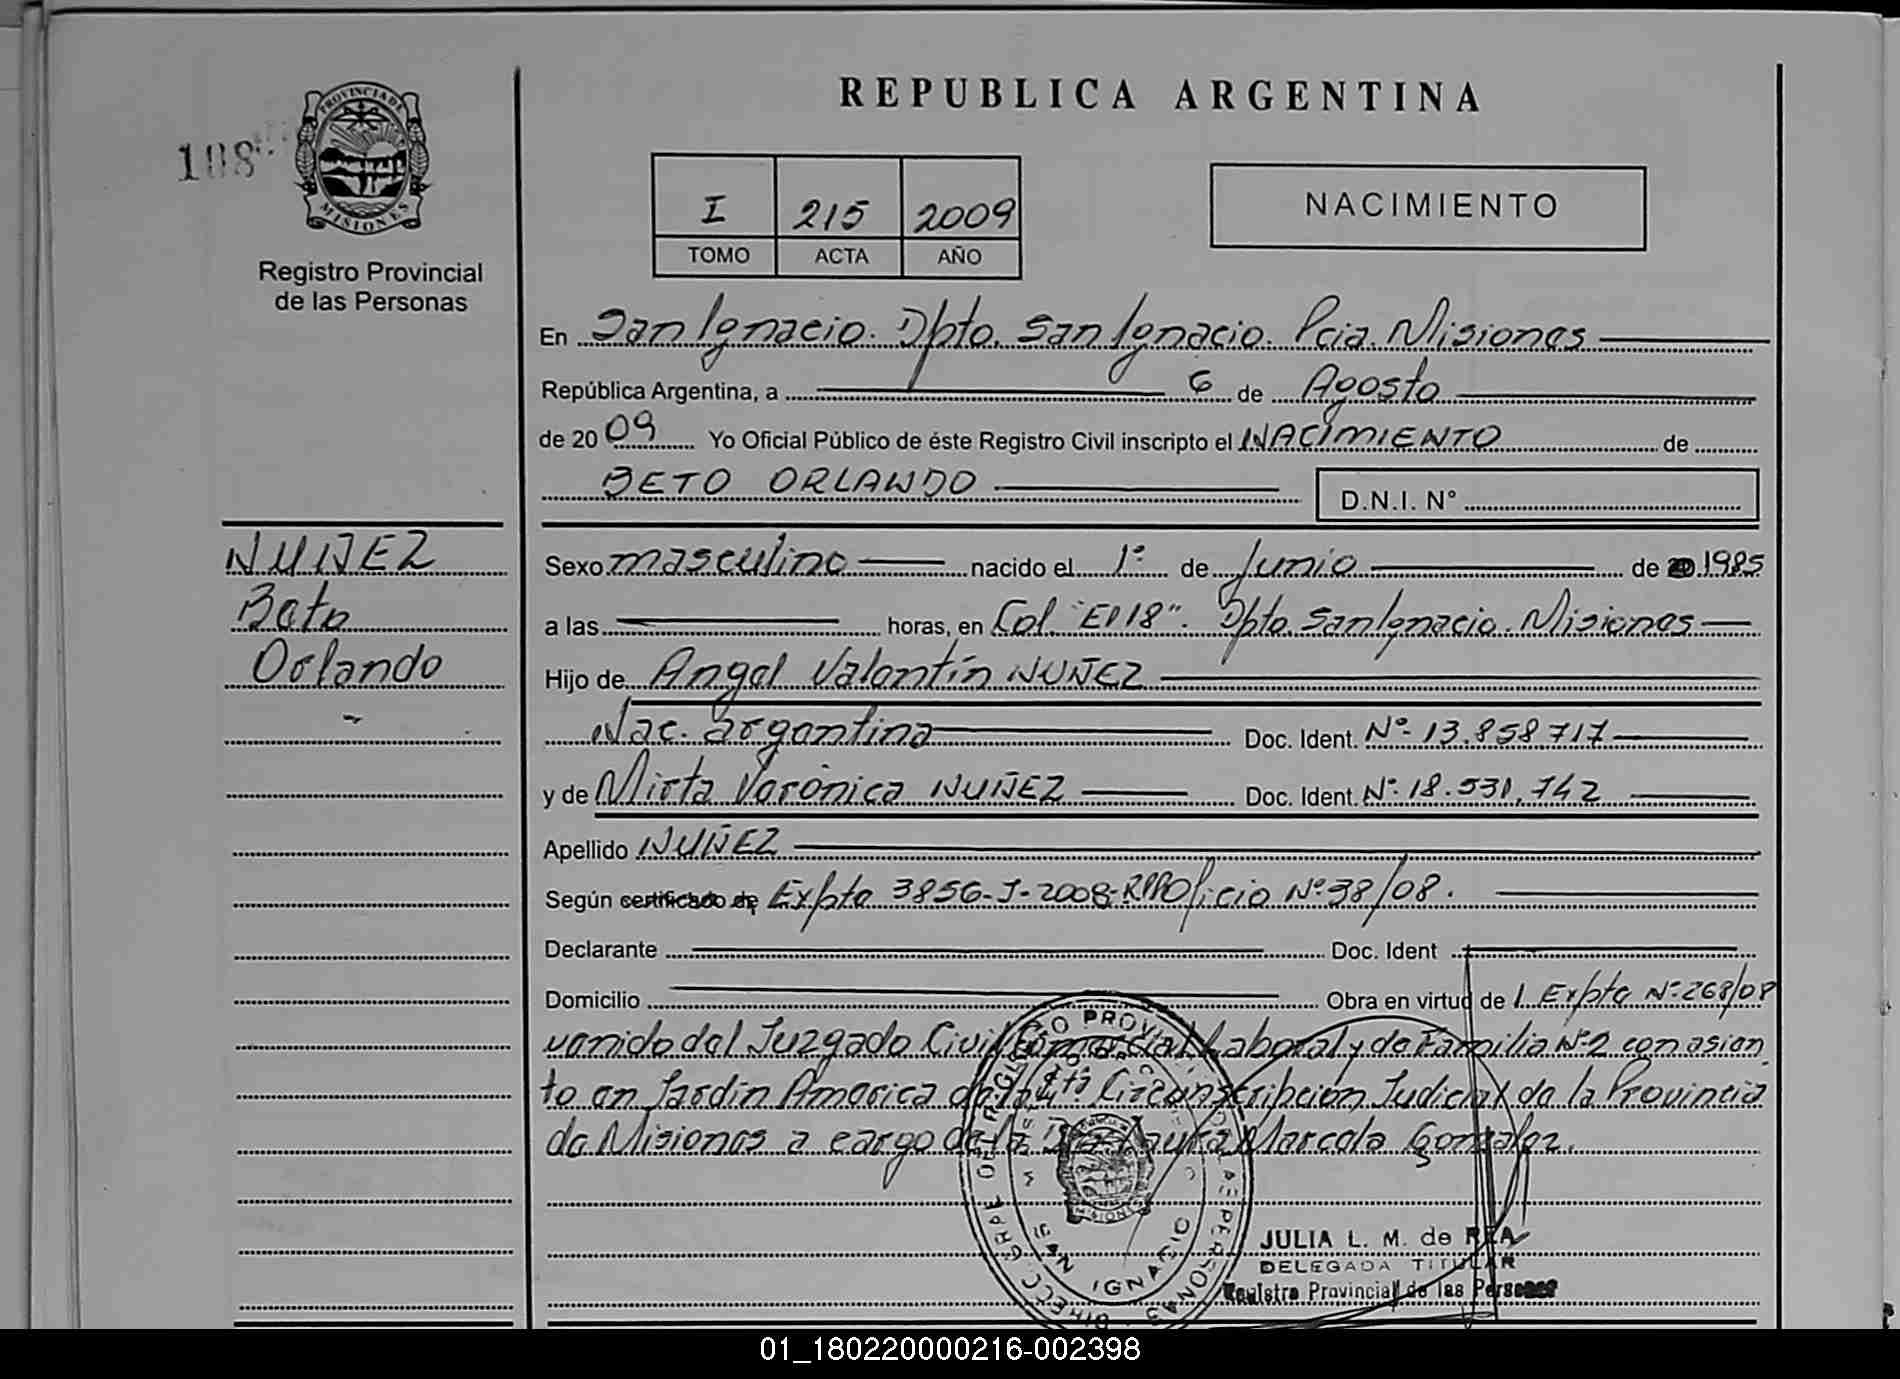 REPUBLICA ARGENTINA
108
PROVINCIA DE
MISIONES
Registro Provincial
de las Personas
I 215 2009
TOMO ACTA AÑO
NACIMIENTO
En San Ignacio. Dpto. San Ignacio. Pcia. Misiones
República Argentina, a 6 de Agosto
de 2009 Yo Oficial Público de éste Registro Civil inscripto el NACIMIENTO de
BETO ORLANDO D.N.I. N°
NUÑEZ
Beto
Orlando
Sexo masculino nacido el 1° de Junio de 1985
a las horas, en Col. "El 18". Dpto. San Ignacio. Misiones
Hijo de Angel Valentín NUÑEZ
Nac. argentina Doc. Ident. N° 13.858.717
y de Mirta Verónica NUÑEZ Doc. Ident. N° 18.531.742
Apellido NUÑEZ
Según certificado de Expte 3856-J-2008-RPP Oficio N° 38/08.
Declarante Doc. Ident
Domicilio Obra en virtud de l Expte N° 268/08
venido del Juzgado Civil Comercial Laboral y de Familia N° 2 con asien
to en Jardín America de la 4ta Circunscripción Judicial de la Provincia
de Misiones a cargo de la Dra Laura Marcela Gonzalez.
SAN IGNACIO
MISIONES
JULIA L. M. de REA
DELEGADA TITULAR
Registro Provincial de las Personas
01_180220000216-002398